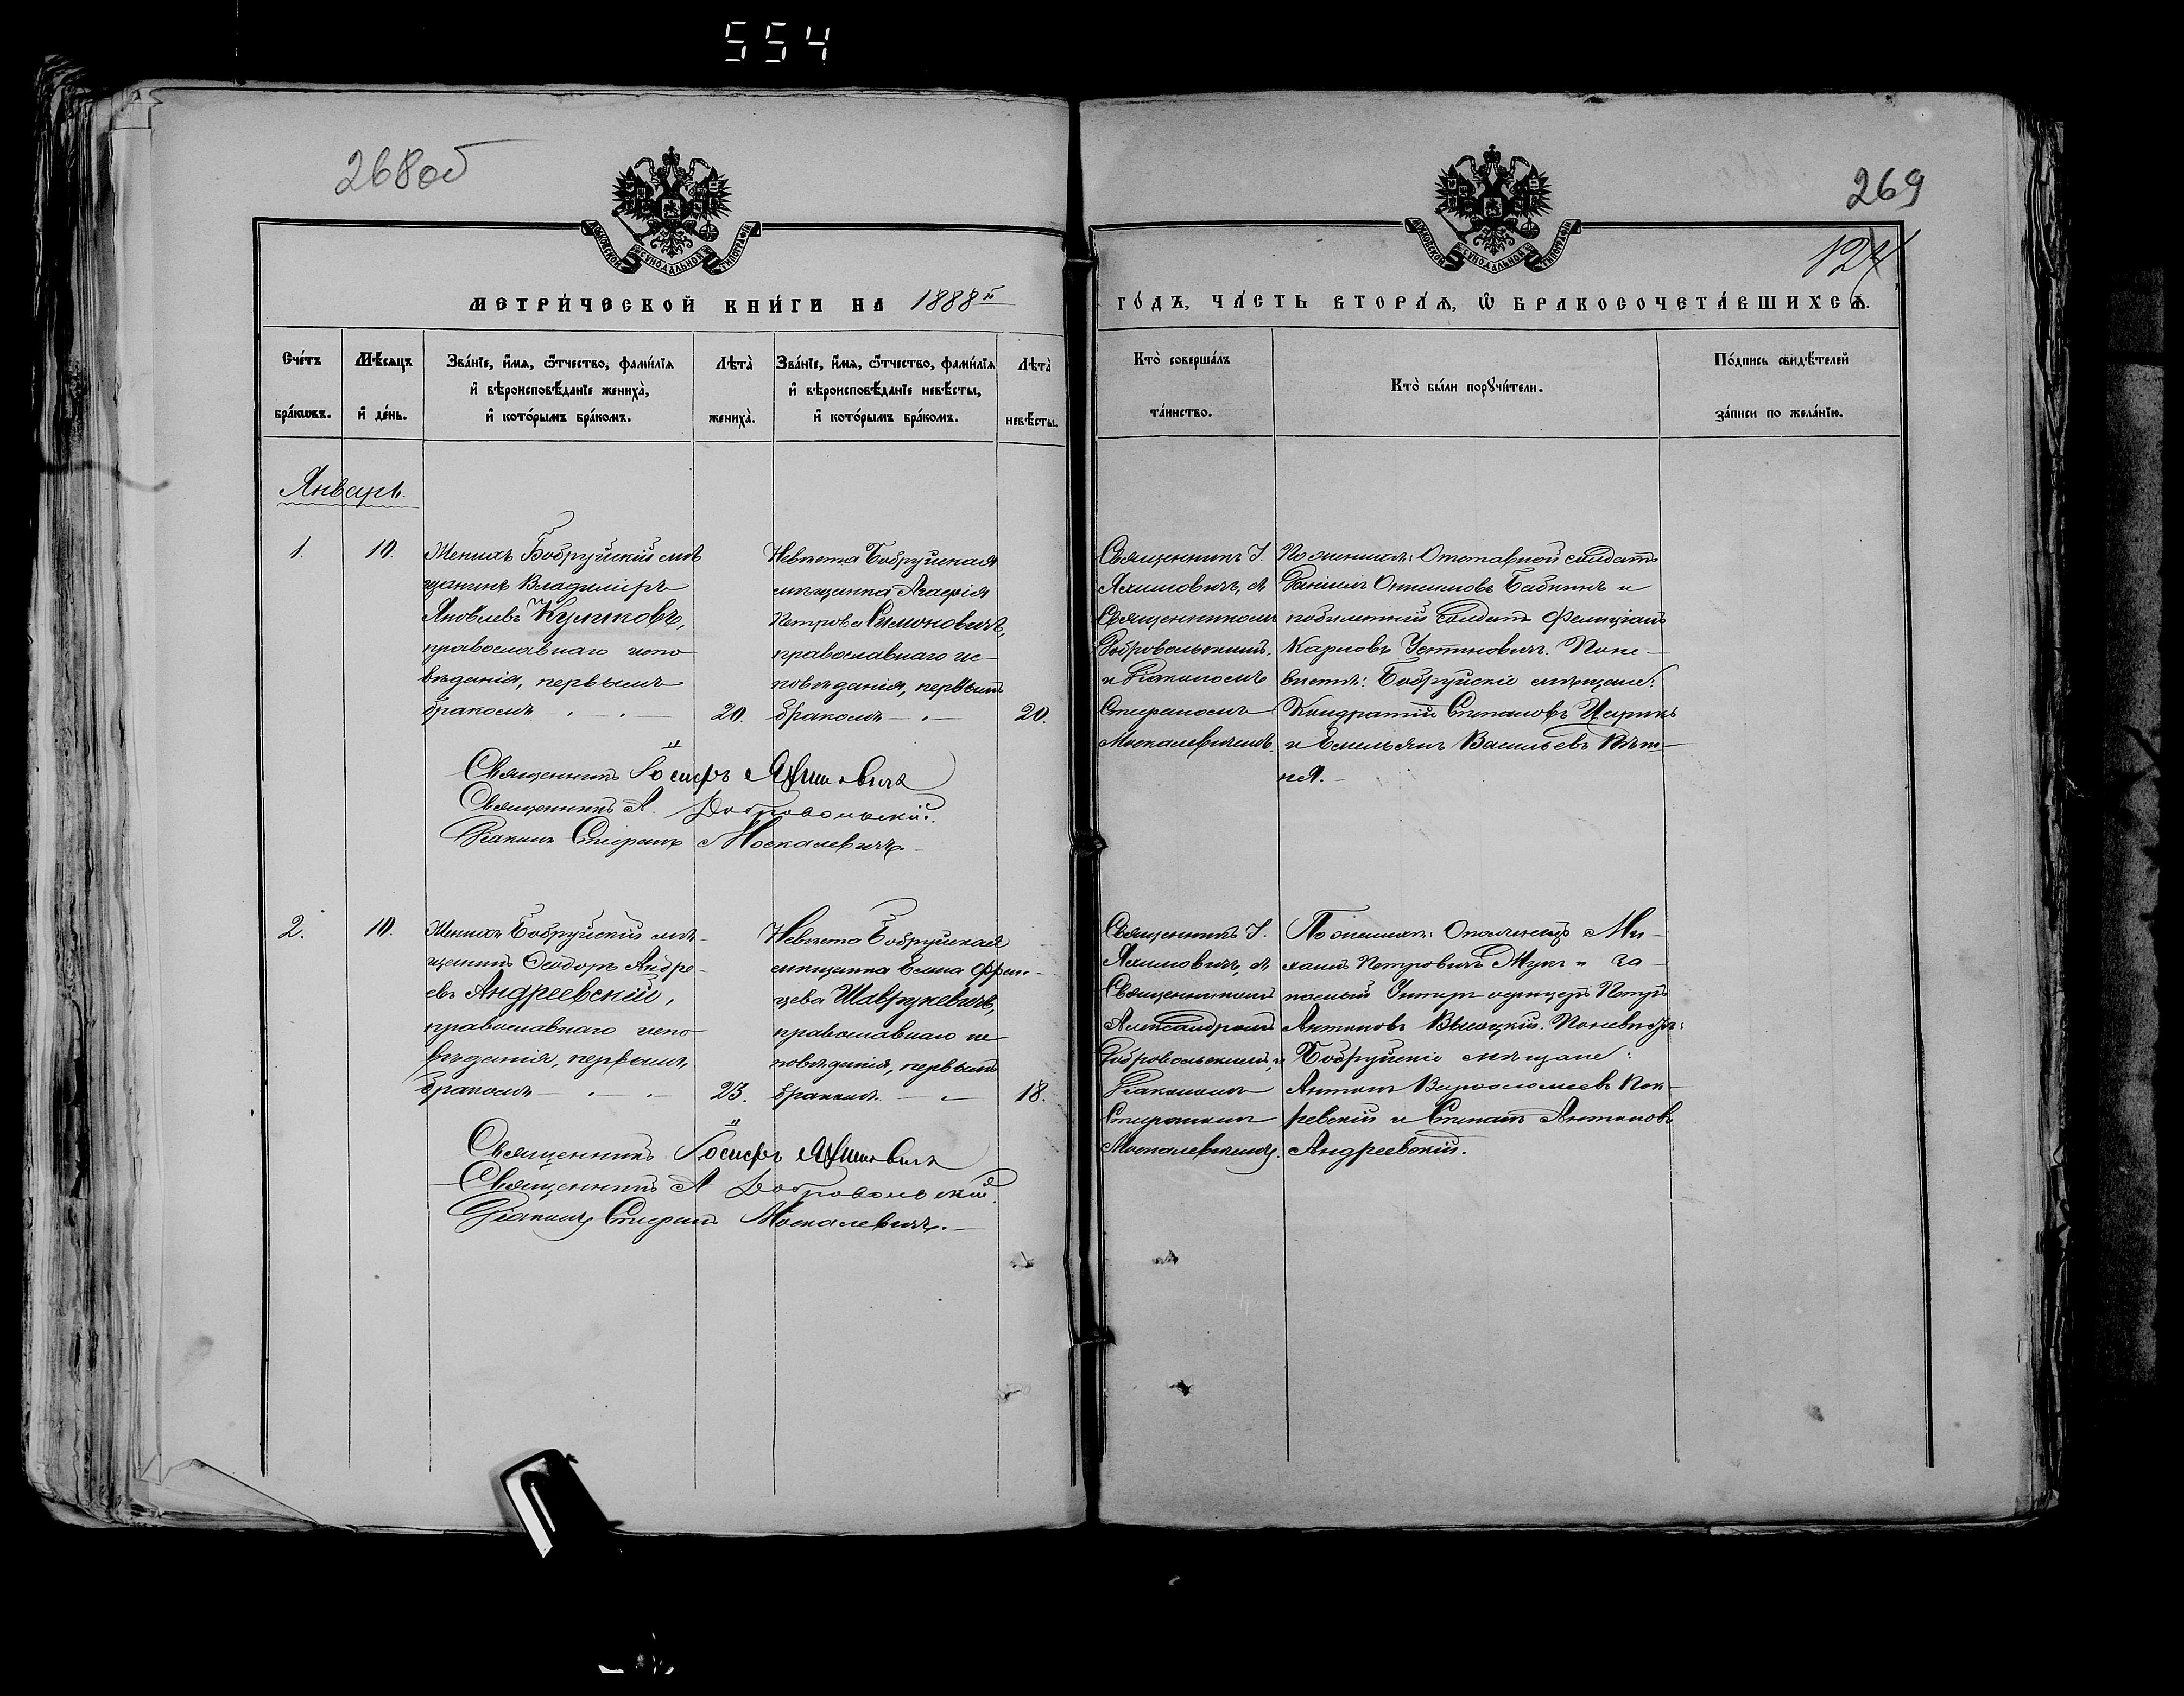 554
268об
269
124
МОСКОВСКОЙ СѴНОДАЛЬНОЙ ТИПОГРАФІИ
МОСКОВСКОЙ СѴНОДАЛЬНОЙ ТИПОГРАФІИ
МЕТРИ́ЧЕСКОЙ КНИ́ГИ НА 1888й
ГО́ДЪ, ЧА́СТЬ ВТОРА́Ѧ, Ѿ БРАКОСОЧЕТА́ВШИХСѦ.
Сче́тъ бра́кѡвъ.
Мѣ́сяцъ и҆ де́нь.
Зва́нїе, и҆́мя, ѻ҆́тчество, фами́лїя
и҆ вѣроисповѣ́данїе жениха̀,
и҆ кото́рымъ бра́комъ.
Лѣта̀ жениха̀.
Зва́нїе, и҆́мя, ѻ҆́тчество, фами́лїя
и҆ вѣроисповѣ́данїе невѣ́сты,
и҆ кото́рымъ бра́комъ.
Лѣта̀ невѣ́сты.
Кто̀ соверша́лъ
та́инство.
Кто̀ бы́ли порꙋчи́тели.
По́дпись свидѣ́телей
за́писи по жела́нїю.
Январь.
1.
10.
Женихъ Бобруйскій мѣ
щанинъ Владиміръ
Яковлевъ Куликовъ,
православнаго испо
вѣданія, первымъ
бракомъ
20.
Невѣста Бобруйская
мѣщанка Агафія
Петрова Симоновичъ,
православнаго ис-
повѣданія, первымъ
бракомъ
20.
Священникъ І.
Яхимовичъ, съ
Священникомъ
Добровольскимъ
и Діакономъ
Спиромъ
Москалевичемъ.
По женихѣ: Отставной солдатъ
Данiилъ Бабкинъ и
побилетный солдатъ Фелиціанъ
Карловъ Устиновичъ. По не-
вѣстѣ: Бобруйскіе мѣщане:
Кондратій Степановъ Царикъ
и Емельянъ Васильевъ Пят-
ка.
Священникъ Іосифъ Яхимовичъ
Священникъ А. Добровольскій.
Діаконъ Москалевичъ.
2.
10.
Женихъ Бобруйскій мѣ-
щанинъ Ѳеодоръ Андре-
евъ Андреевскій,
православнаго испо
вѣданія, первымъ
бракомъ
23.
Невѣста Бобруйская
мѣщанка Елена Фран-
цева Шаврукевичъ,
православнаго ис
повѣданія, первымъ
бракомъ
18.
Священникъ І.
Яхимовичъ, съ
Священникомъ
Александромъ
Добровольскимъ, и
Діакономъ
Москалевичемъ.
По женихѣ: Ополченецъ Ми-
хаилъ Петровичъ Мукъ и за-
пасный Унтеръ офицеръ Петръ
Антоновъ Высоцкій. По невѣстѣ:
Бобруйскіе мѣщане:
Антонъ Варфоломеевъ Пок-
ревскій и Степанъ Антоновъ
Андреевскій.
Священникъ Іосифъ Яхимовичъ
Священникъ А Добровольскій.
Діаконъ Москалевичъ.